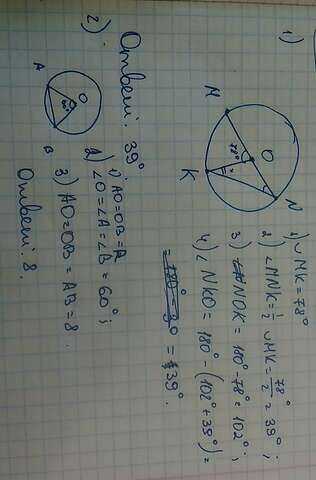 1)
M
O
78°
K
N
1) ◡MK = 78°
2) ∠MNK = 1/2 ◡MK = 78°/2 = 39°;
3) ∠NOK = 180° - 78° = 102°;
4) ∠NKO = 180° - (102° + 39°) =
= 39°.
Ответ: 39°
2)
A
O
60°
B
1) AO = OB = R
2) ∠O = ∠A = ∠B = 60°;
3) AO = OB = AB = 8.
Ответ: 8.